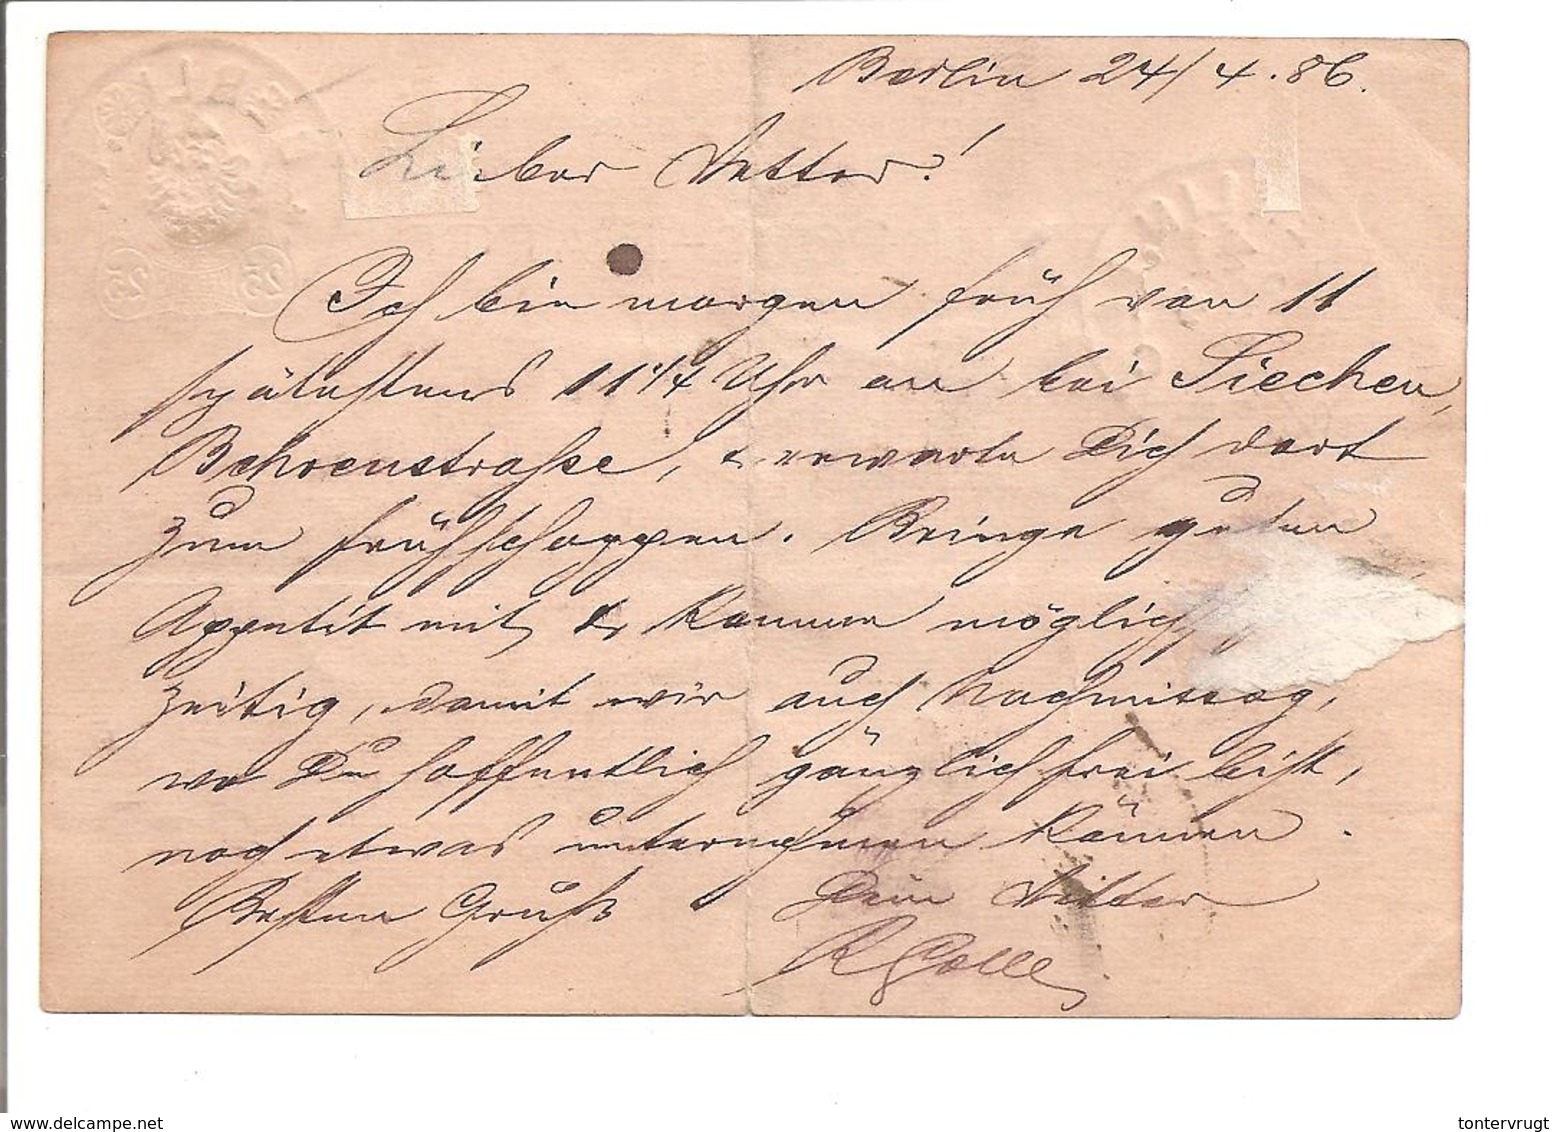 Berlin 24/4.86.
Lieber Vetter!
Ich bin morgen früh von 11
spätestens 11 1/4 Uhr an bei Siechen,
Behrenstraße, u. erwarte Dich dort
zum Frühschoppen. Bringe guten
Appetit mit, u. komme möglichst
zeitig, damit wir auch Nachmittag,
wo Du hoffentlich gänzlich frei bist,
noch etwas unternehmen können.
Besten Gruß Dein Vetter
25 25
www.delcampe.net
tontervrugt